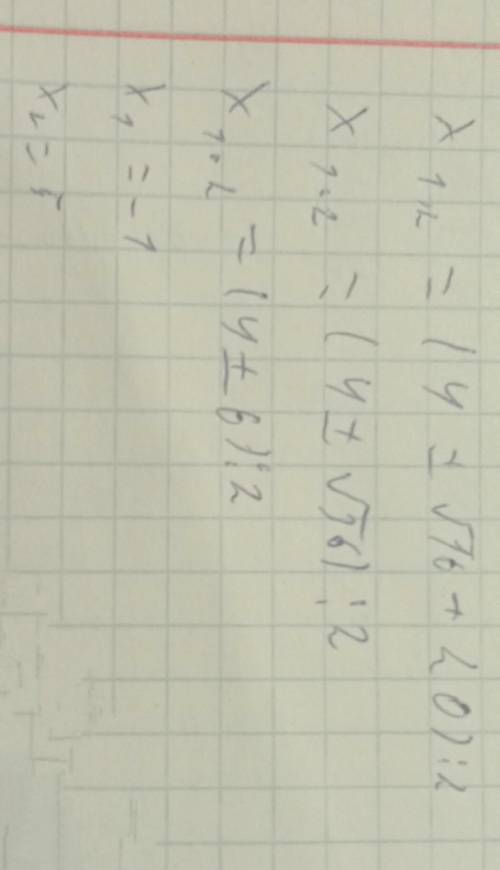 X₁,₂ = (4 ± √16 + 20) : 2
X₁,₂ = (4 ± √36) : 2
X₁,₂ = (4 ± 6) : 2
X₁ = -1
X₂ = 5